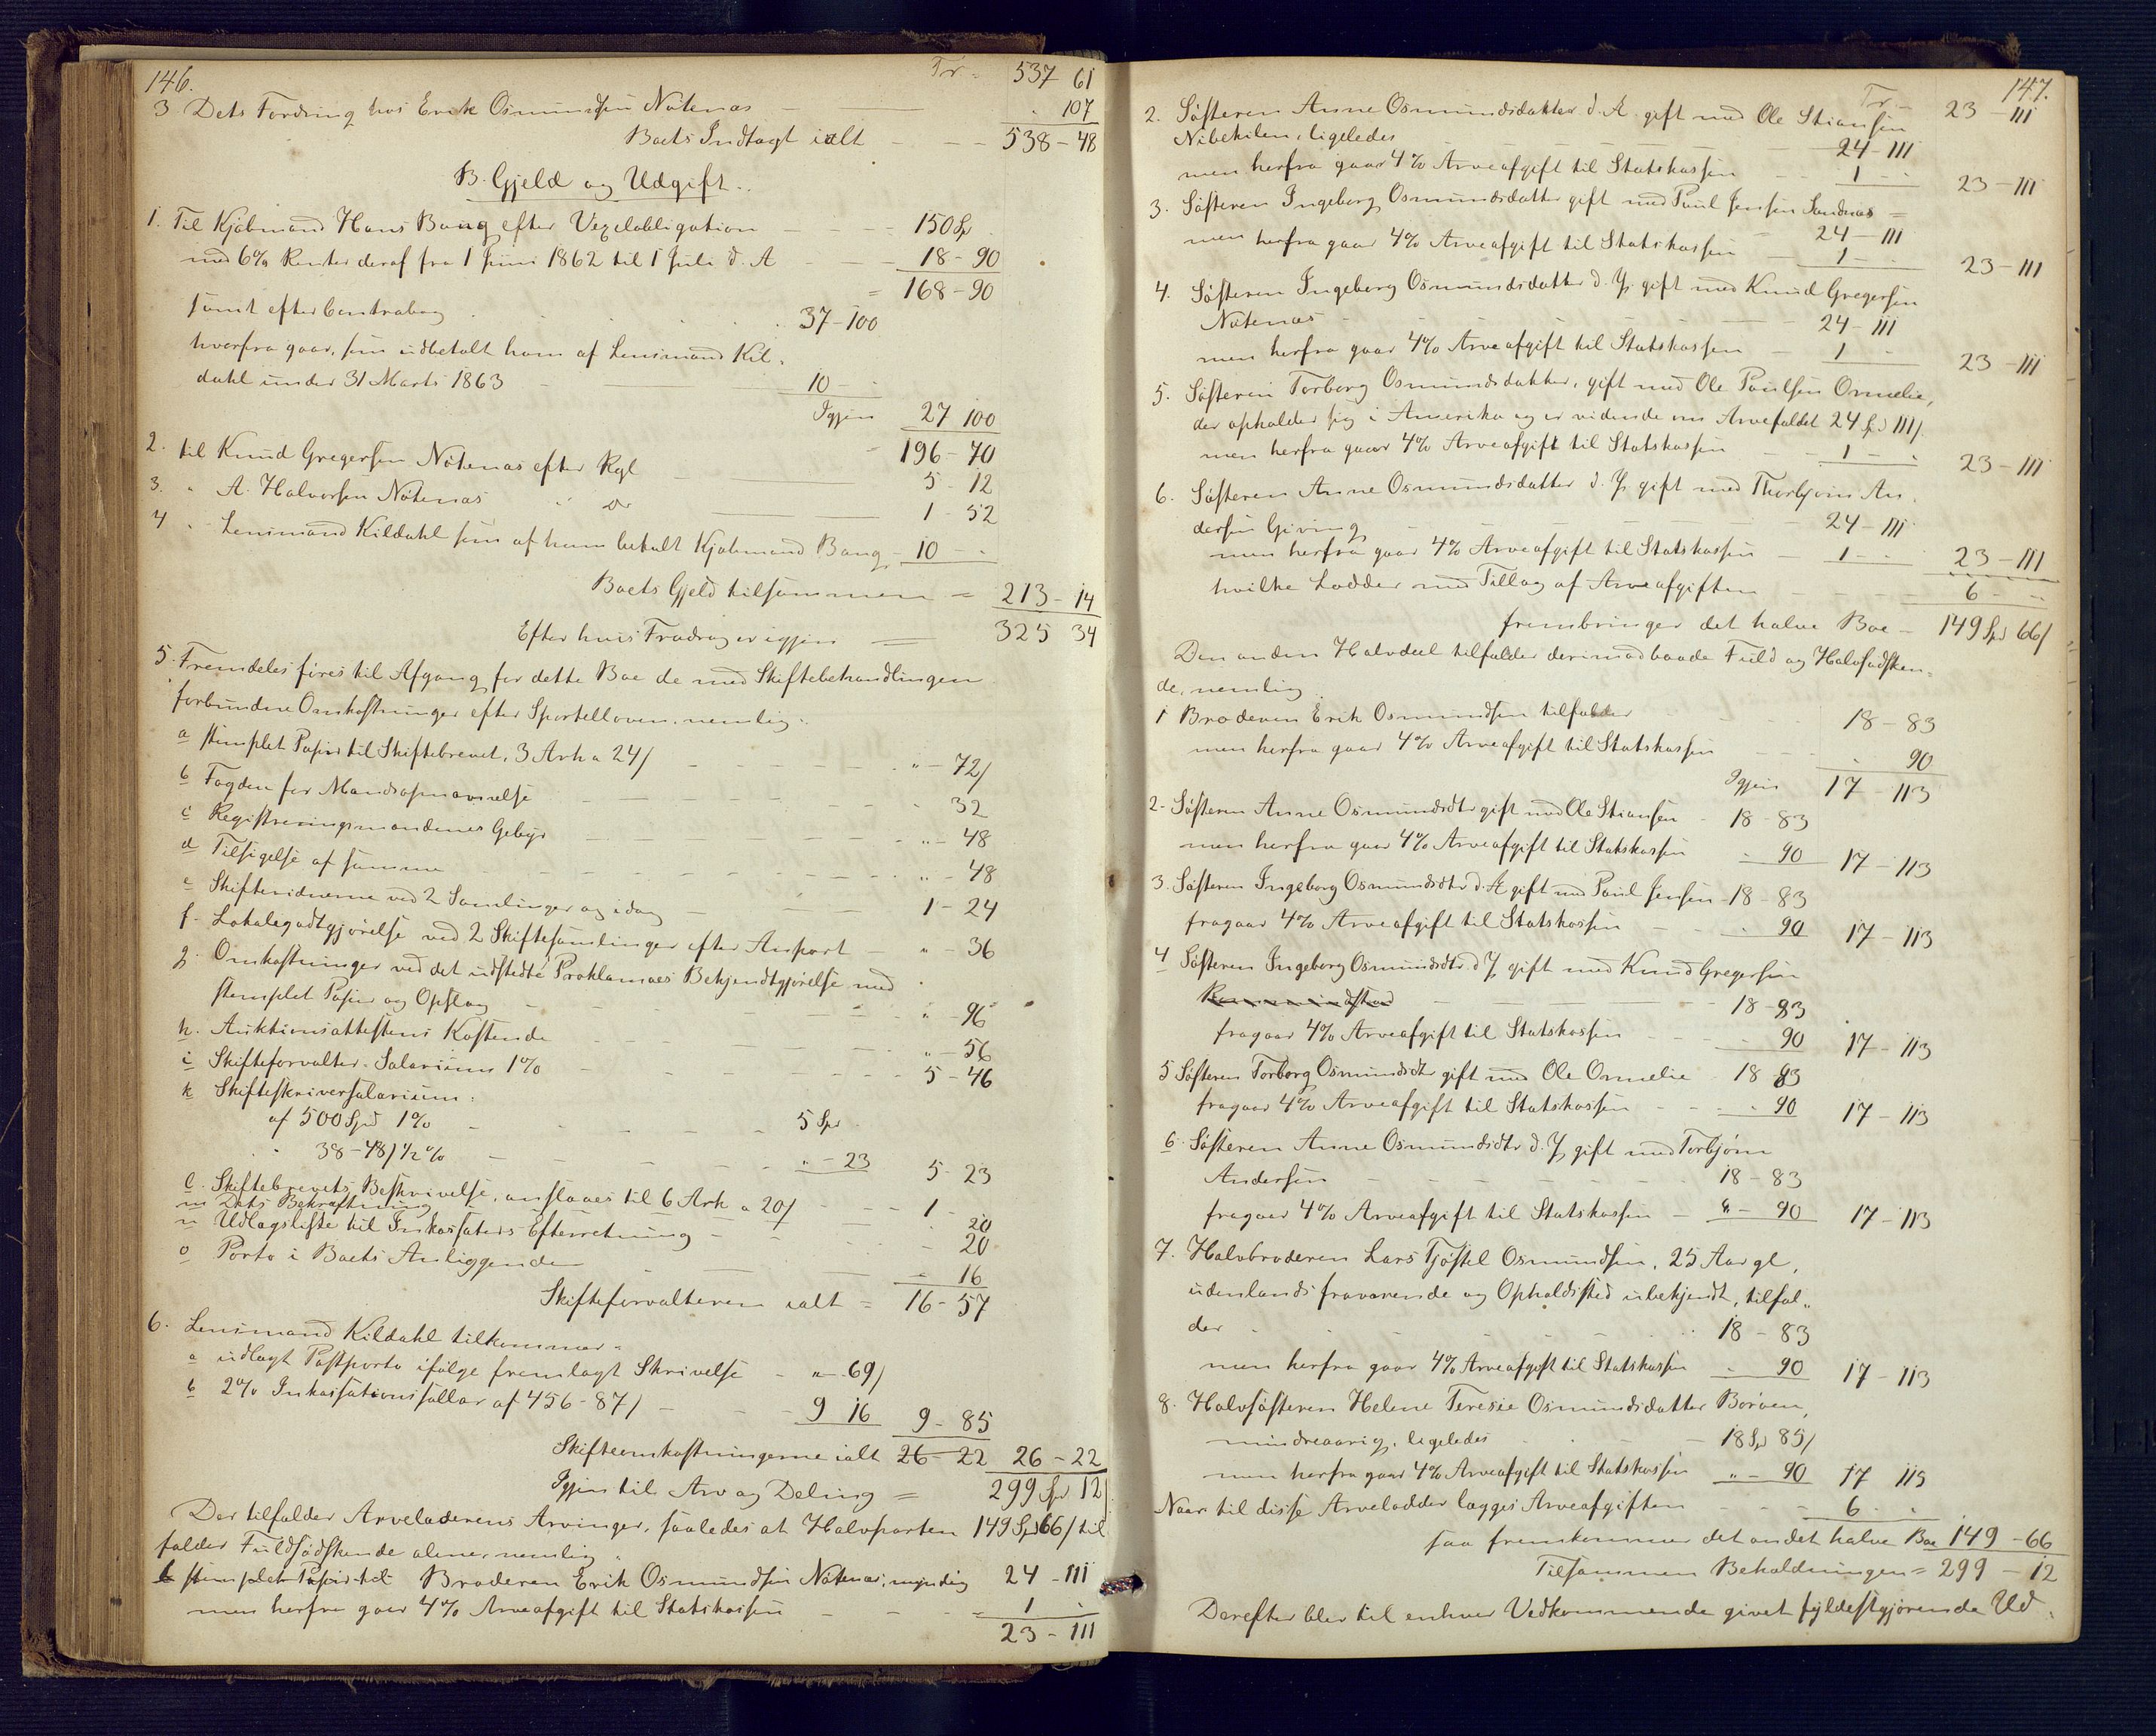 146.
Tr. 537 61
3 Dets Fordring hos Erik Osmundsen Nötenæs — — . 107
Boets Indtægt ialt — — — 538 - 48
B. Gjeld og Udgift.
1. Til Kjöbmand Hans Bang efter Vexelobligation — — 150 Sp
med 6% Renter deraf fra 1 Juni 1862 til 1 Juli d. A — — 18 - 90
= 168 - 90
samt efter Contrabog . . . . 37 - 100
hvorfra gaar, som udbetalt ham af Lensmand Kil-
dahl under 31 Marts 1863 — — 10 - .
Igjen 27 100
= 196 - 70
2. til Knud Gregersen Nötenæs efter Rgl — — 5 - 12
3. " A. Halvorsen Nötenæs " do — — 1 - 52
4 . Lensmand Kildahl som af ham betalt Kjöbmand Bang - 10 - .
Boets Gjeld tilsammen = 213 - 14
Efter hvis Fradrag er igjen = 325 34
5. Fremdeles föres til Afgang for dette Boe de med Skiftebehandlingen
forbundne Omkostninger efter Sportelloven, nemlig:
a stemplet Papir til Skiftebrevet, 3 Ark a 24/ — — " - 72/
b Fogden for Mandsopnævnelse — — . 32
c Registreringsmændenes Gebyr — — " - 48
d Tilsigelse af samme — — " - 48
e Skiftevidnerne ved 2 Samlinger og idag — — 1 - 24
f. Lokalegodtgjörelse ved 2 Skiftesamlinger efter Anpart — " - 36
g. Omkostninger ved det udstedte Proklamaes Bekjendtgjörelse med
stemplet Papir og Opslag — — " - 96
h. Auktionsattestens Kostende — — " - 56
i Skifteforvalter-Salarium 1% — — 5 - 46
k Skifteskriversalarium:
af 500 Spd 1% — — 5 Spd
" 38 - 48/ ½% — — " - 23 5 - 23
l. Skiftebrevets Beskrivelse, anslaaes til 6 Ark a 20/ — — 1 - .
m Dets Bekræftning — — . 20
n Udlagsliste til Inkassators Efterretning — — - 20
o Porto i Boets Anliggender — — - 16
Skifteforvalteren ialt = 16 - 57
6. Lensmand Kildahl tilkommer:
a udlagt Postporto ifölge fremlagt Skrivelse - " - 69/
b 2% Inkassations af 456 - 87/ — — 9 16 9 - 85
Skifteomkostningerne ialt 26 - 22 26 - 22
Igjen til Arv og Deling = 299 Sp 12/
Der tilfalder Arveladerens Arvinger, saaledes at Halvparten 149 Spd 66/ til
falder Fuldsödskende alene, nemlig:
stemplet Papir til Broderen Erik Osmundsen Nötenæs, myndig 24 - 111
men herfra gaar 4% Arveafgift til Statskassen — — 1 .
23 - 111
147.
Tr. - 23 - 111
2. Söfteren Anne Osmundsdatter d. Æ. gift med Ole Stiansen
Nibekilen, ligeledes — — 24 - 111
men herfra gaar 4% Arveafgift til Statskassen — — 1 - . 23 - 111
3. Söfteren Ingeborg Osmundsdatter gift med Paul Jensen Sandnæs =
24 - 111
men herfra gaar 4% Arveafgift til Statskassen — 1 - . 23 - 111
4. Söfteren Ingeborg Osmundsdatter d. Y. gift med Knud Gregersen
Nötenæs — — 24 - 111
men herfra gaar 4% Arveafgift til Statskassen — 1 . 23 - 111
5. Söfteren Torborg Osmundsdatter, gift med Ole Paulsen Ormelie,
der opholder sig i Amerika og er vidende om Arvefaldet 24 Spd 111/
men herfra gaar 4% Arveafgift til Statskassen — 1 - . 23 - 111
6. Söfteren Anne Osmundsdatter d. Y. gift med Thorbjørn An-
dersen Giving — — 24 - 111
men herfra gaar 4% Arveafgift til Statskassen — 1 - . 23 - 111
hvilke Lodder med Tillæg af Arveafgiften — — 6 - "
frembringer det halve Boe — 149 Spd 66/
Den anden Halvdeel tilfalder derimod baade Fuld og Halvsödsken-
de, nemlig:
1 Broderen Erik Osmundsen tilfalder — 18 - 83
men herfra gaar 4% Arveafgift til Statskassen — — . 90
Igjen 17 - 113
2 - Söfteren Anne Osmundsdtr gift med Ole Stiansen - 18 - 83
men herfra gaar 4% Arveafgift til Statskassen . 90 17 - 113
3. Söfteren Ingeborg Osmundsdtr d. Æ gift med Paul Jensen - 18 - 83
fragaar 4% Arveafgift til Statskassen — — . 90 17 - 113
4 Söfteren Ingeborg Osmundsdtr d. Y gift med Knud Gregersen
— — 18 - 83
fragaar 4% Arveafgift til Statskassen — — . 90 17 - 113
5 Söfteren Torborg Osmundsdtr gift med Ole Ormelie - 18 - 83
fragaar 4% Arveafgift til Statskassen — — . 90 17 - 113
6. Söfteren Anne Osmundsdtr d. Y gift med Torbjørn
Andersen — — 18 - 83
fragaar 4% Arveafgift til Statskassen — " - 90 17 - 113
7. Halvbroderen Lars Tjøstel Osmundsen, 25 Aar gl,
udenlands fraværende og Opholdssted ubekjendt, tilfal-
der — — 18 - 83
men herfra gaar 4% Arveafgift til Statskassen . 90 17 - 113
8. Halvsöfteren Helene Teresie Osmundsdatter Börøen,
mindreaarig, ligeledes — 18 Spd 85/
men herfra gaar 4% Arveafgift til Statskassen " - 90 17 115
Naar til disse Arvelodder lægges Arveafgiften — — 6 .
saa fremkommer det andet halve Boe 149 - 66
Tilsammen Beholdningen = 299 - 12
Derefter blev til enhver Vedkommende givet fyldestgjørende Ud-